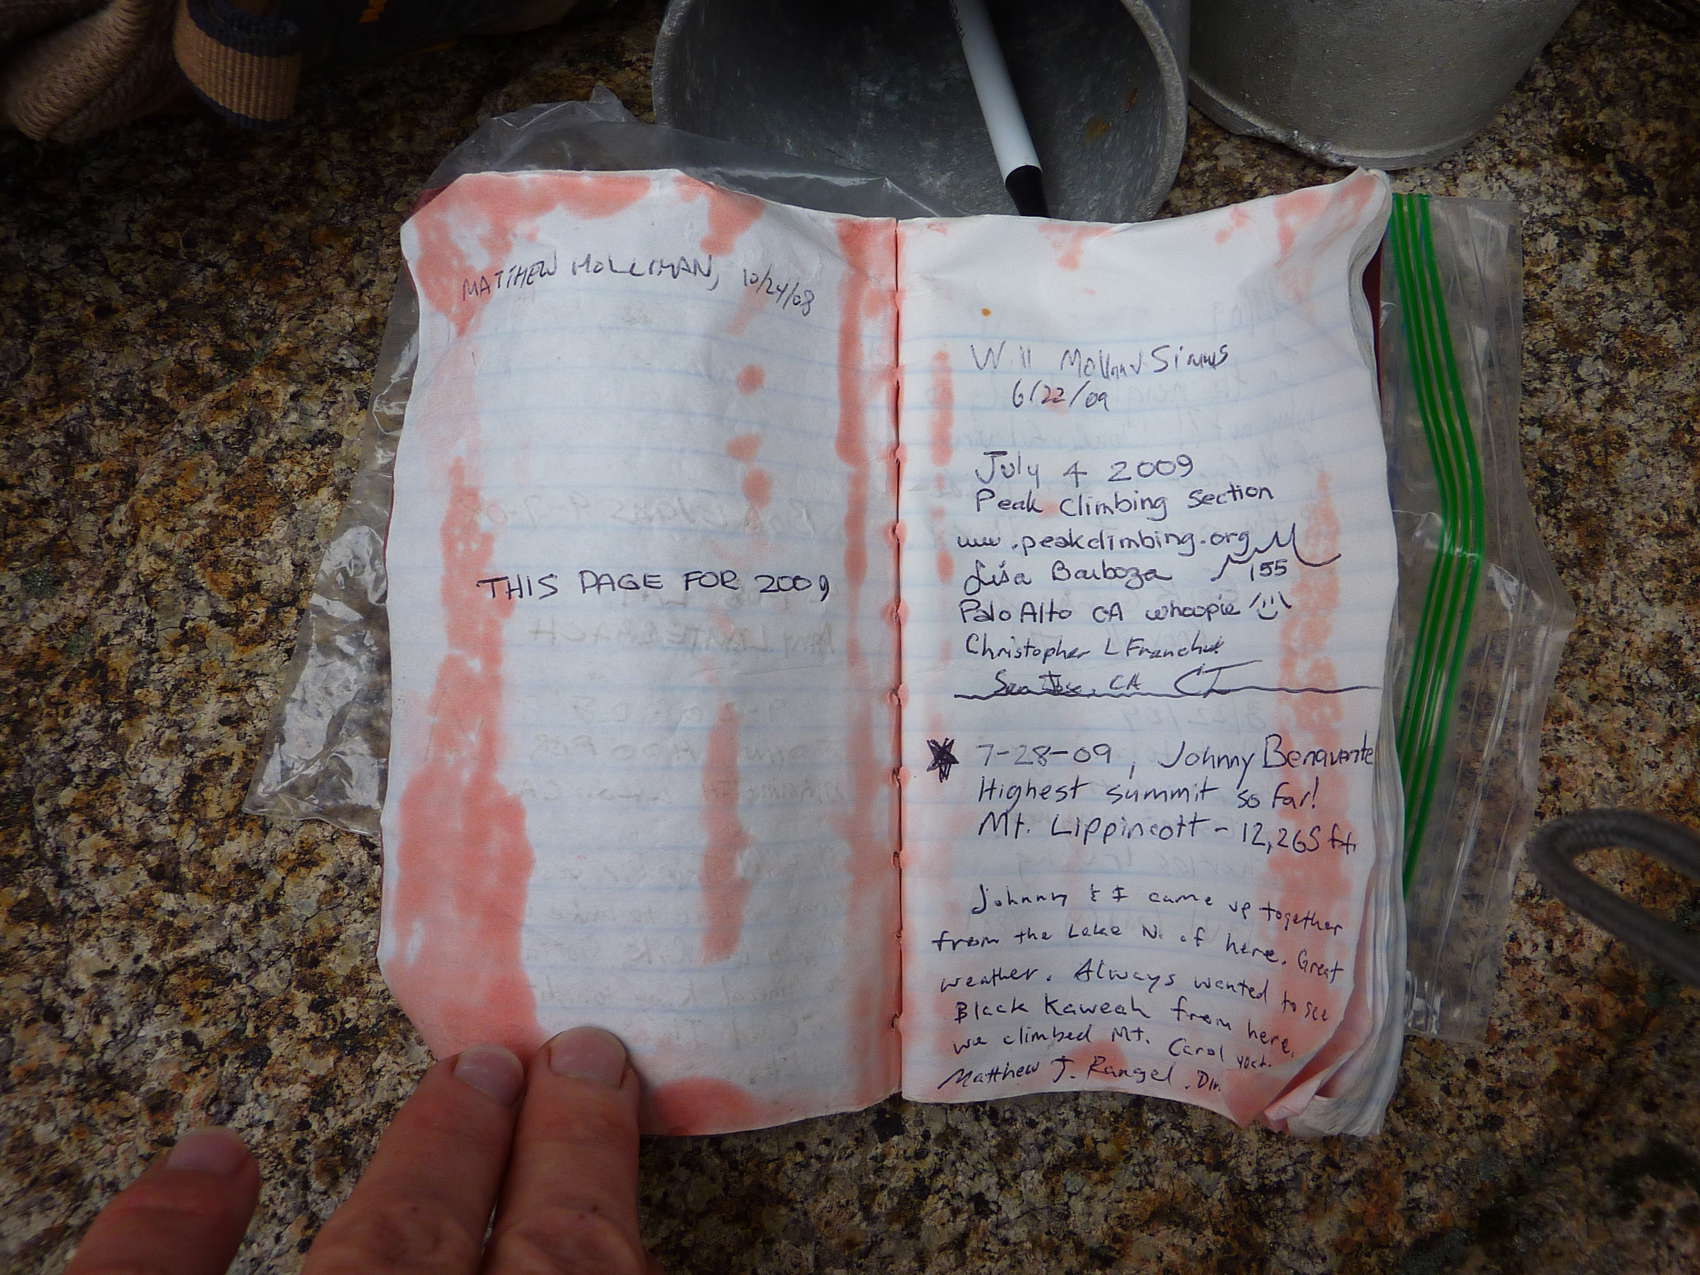 MATTHEW HOLLIMAN, 10/24/08
THIS PAGE FOR 2009
Will
6/22/09
July 4 2009
Peak Climbing Section
www.peakclimbing.org
Lisa Barboza 155
Palo Alto CA whoopie
Christopher L Franchuk
San Jose, CA
7-28-09, Johnny Benavente
Highest summit so far!
Mt. Lippincott - 12,265 ft.
Johnny & I came up together
from the Lake N. of here. Great
weather. Always wanted to see
Black Kaweah from here.
we climbed Mt. Carol
Matthew J. Rangel.